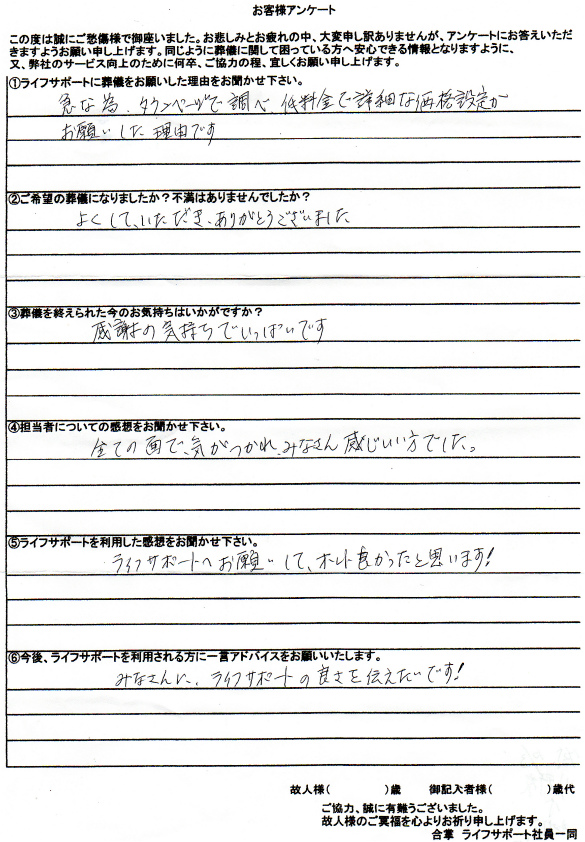 お客様アンケート
この度は誠にご愁傷様で御座いました。お悲しみとお疲れの中、大変申し訳ありませんが、アンケートにお答えいただ
きますようお願い申し上げます。同じように葬儀に関して困っている方へ安心できる情報となりますように、
又、弊社のサービス向上のために何卒、ご協力の程、宜しくお願い申し上げます。
①ライフサポートに葬儀をお願いした理由をお聞かせ下さい。
急な為、タウンページで調べ、低料金で詳細な価格設定が
お願いした理由です
②ご希望の葬儀になりましたか？不満はありませんでしたか？
よくして、いただき、ありがとうございました
③葬儀を終えられた今のお気持ちはいかがですか？
感謝の気持ちでいっぱいです
④担当者についての感想をお聞かせ下さい。
全ての面で、気がつかれ、みなさん感じいい方でした。
⑤ライフサポートを利用した感想をお聞かせ下さい。
ライフサポートへお願いして、ホント良かったと思います!
⑥今後、ライフサポートを利用される方に一言アドバイスをお願いいたします。
みなさんに、ライフサポートの良さを伝えたいです!
故人様（　　　　）歳　　御記入者様（　　　　）歳代
ご協力、誠に有難うございました。
故人様のご冥福を心よりお祈り申し上げます。
合掌　ライフサポート社員一同